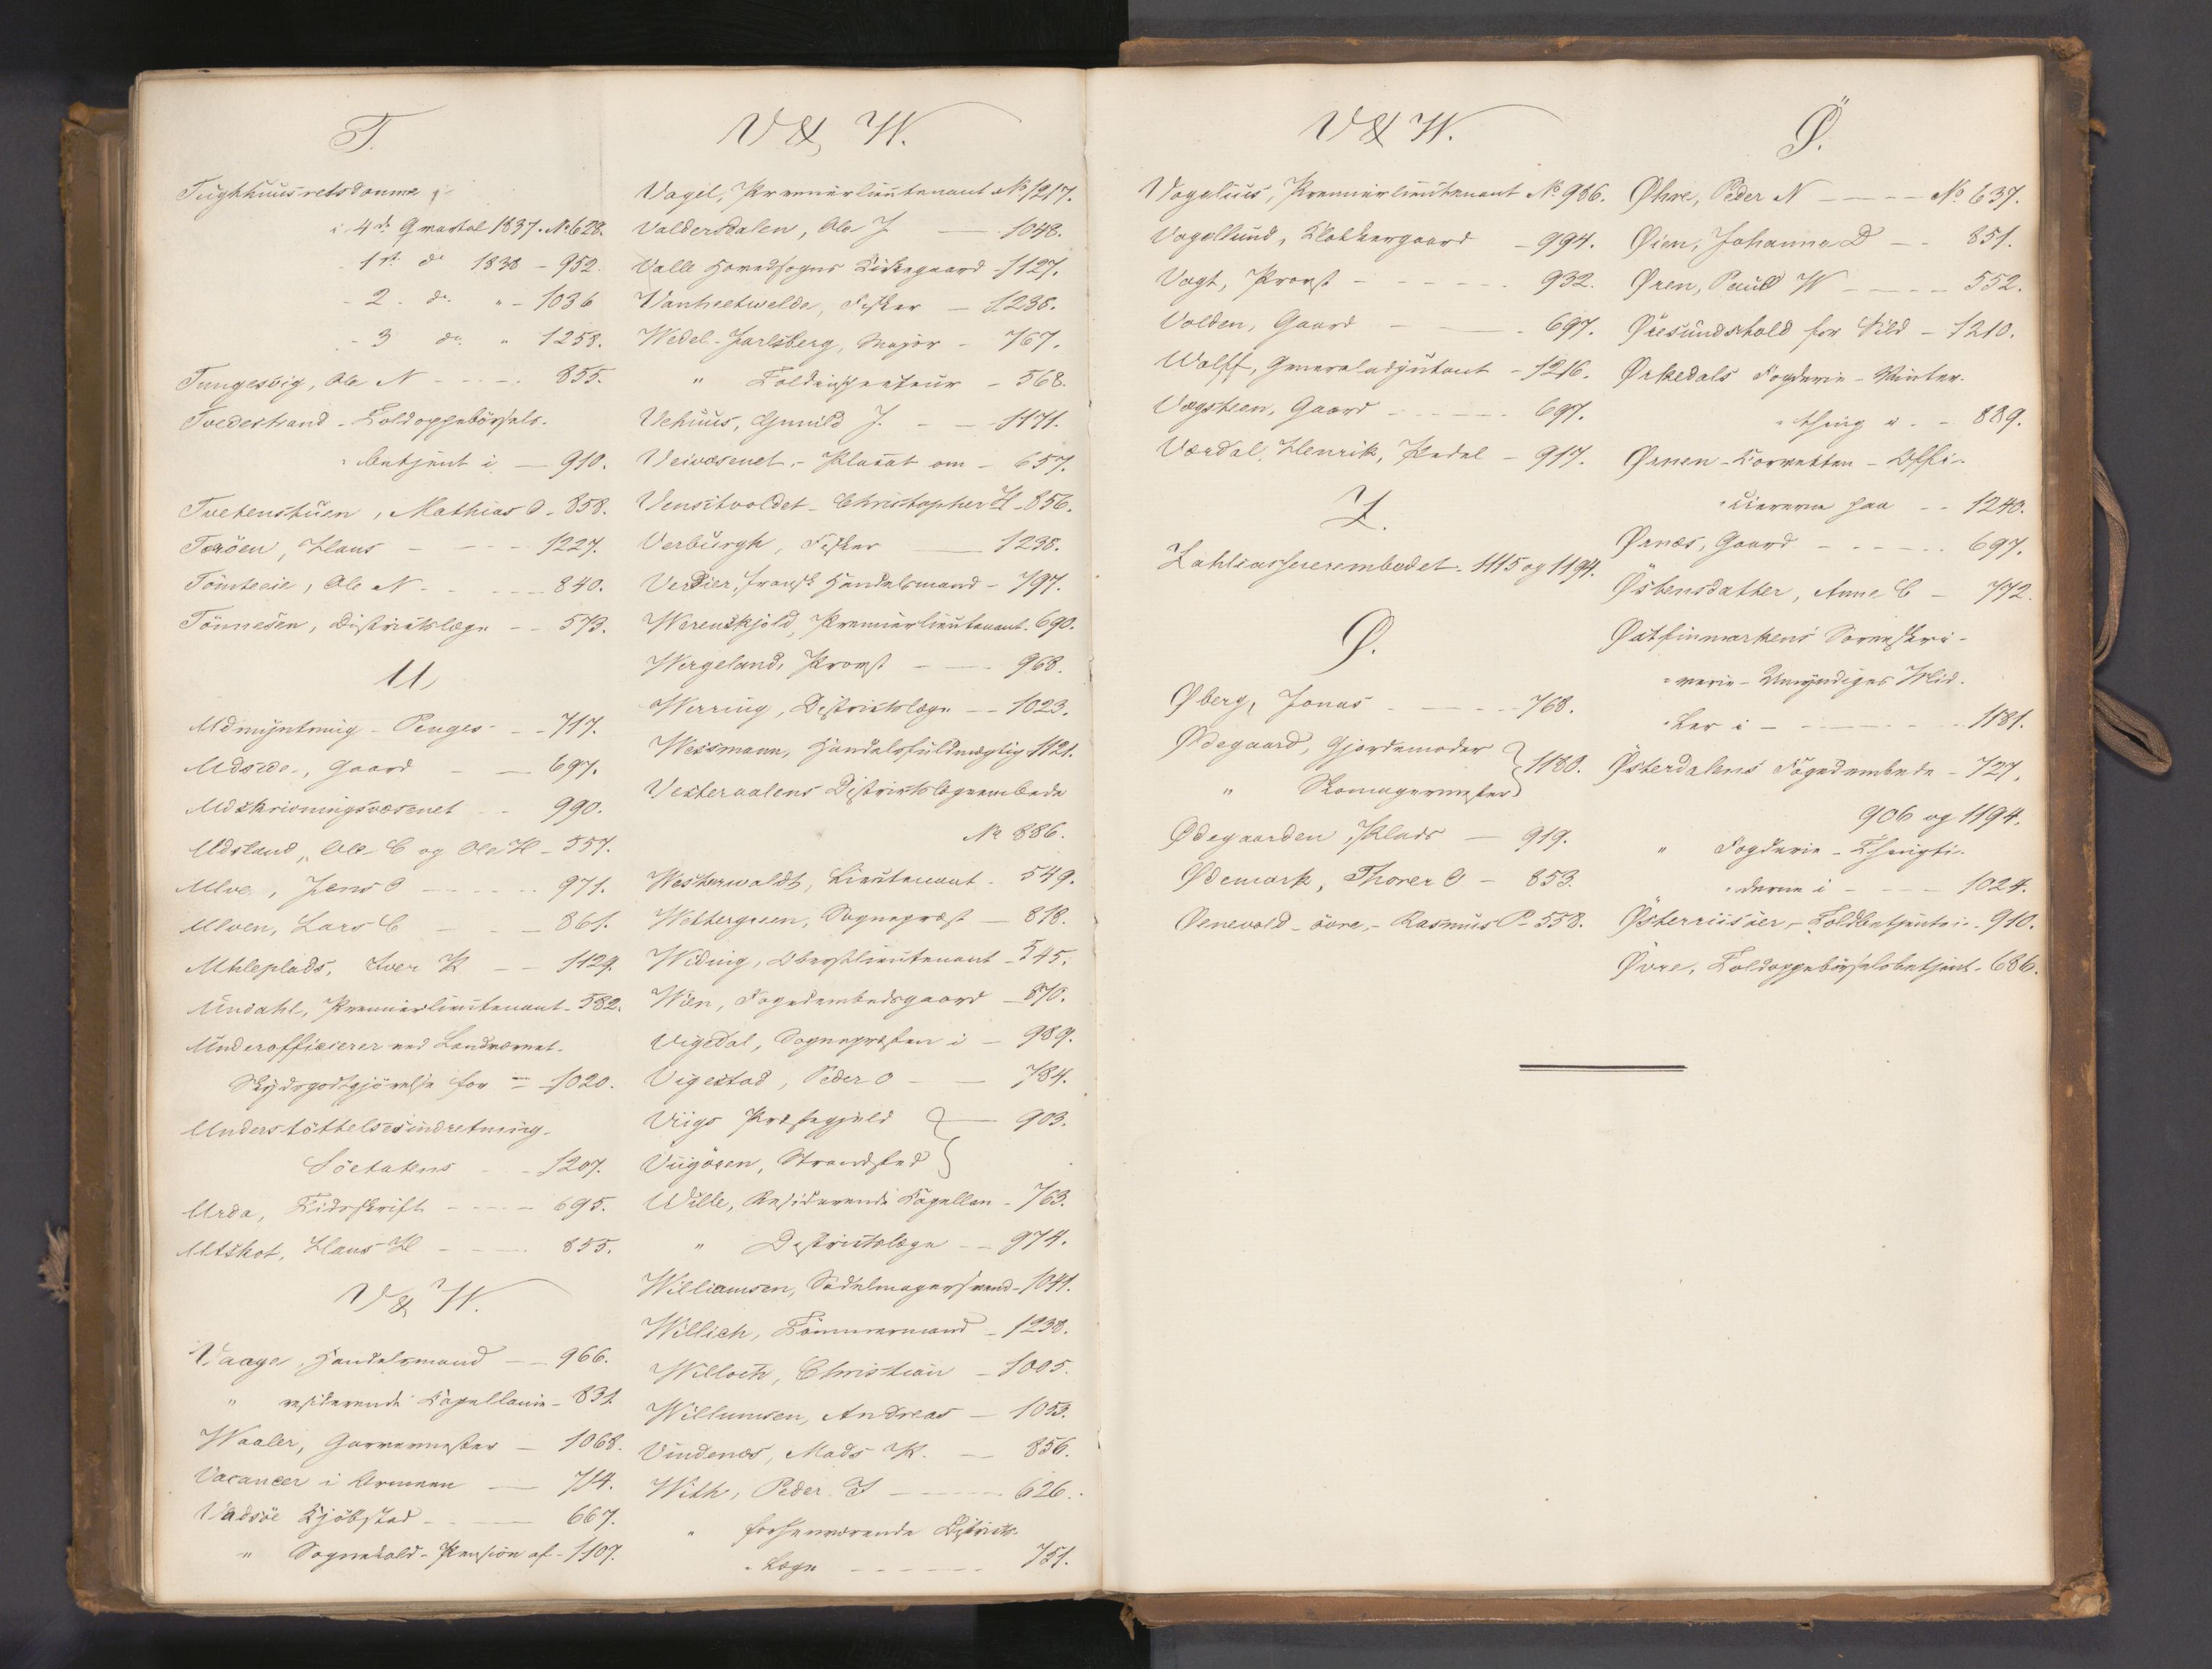 T.
Tughhuusretsdomme
i 4de Qvartal 1837. No 628.
- 1st do 1838 - 952.
- 2. do " - 1036
- 3 do " 1258.
Tungesvig, Ole N - - - - 855.
Tvedestrand - Toldoppebörsels-
betjent i - 910.
Tvetenstuen, Mathias O - 858.
Hans - - - 1227.
Ole N - - - - 840.
Tönnesen, Districtslæge - - 573.
U
Udmyntning - Penges - - 717.
Gaard - - 697.
Udskrivningsvæsenet - - 990.
Udsland, Ole C og Ole H - 557.
Ulve, Jens O - - - - - 971.
Ulven, Lars C - - - 861.
Uhleplads, Iver K - - 1129.
Undahl, Premierlieutenant - 582.
Underofficierer ved Landværnet -
Skydsgodtgjörelse for - 1020.
Understöttelsesindretning -
Söetatens - - 1207.
Urda, Tidsskrift - - - - 695.
Utskot, Hans H - - - - 855.
V & W.
Vaage, Handelsmand - - 966.
" residerende Capellanie - 831.
Waaler, Garvermester - 1068.
Vacancer i Armeen - 714.
Vadsöe Kjöbstad - - - 667.
" Sognekald - Pension af - 1107.
V & W.
Vagel, Premierlieutenant No 1217.
Valdersdalen, Ole J. - 1048.
Valle Hovedsogns Kirkegaard - 1127.
Fisker - 1238.
Wedel-Jarlsberg, Major - 767.
" Toldinspecteur - 568.
Vehuus, Gunild J. - - 1171.
Veivæsenet - Placat om - 657.
Christopher H - 856.
Verburgh, Fisker - 1238.
Verdier, fransk Handelsmand - 797.
Werenskjold, Premierlieutenant. 690.
Wergeland, Provst - - 968.
Werring, Districtslæge - - 1023.
Wessmann, Handelsfuldmægtig 1121.
Vesteraalens Districtslægeembede
No 886.
Westerwaldt, Lieutenant - 549.
Wettergreen, Sognepræst - 818.
Widing, Oberstlieutenant - 545.
Wien, Fogedembedsgaard - 870.
Vigedal, Sognepræsten i - 989.
Vigestad, Peder O - - 784.
Viigs Præstegjeld } - 903.
Viigören, Strandsted }
Wille, Residerende Capellan - 763.
" Districtslæge - - 974.
Williamsen, Sadelmagersvend - 1041.
Willich, Tömmermand - 1238.
Willoch, Christian - 1005.
Willumsen, Andreas - 1053.
Vindenæs, Mads K. - 856.
With, Peder J - - - - 626.
" forhenværende Districts-
læge - - - - - - 751.
V & W.
Vogelius, Premierlieutenant No 986.
Vogellund, Klokkergaard - 994.
Vogt, Provst - - - - - 932.
Volden, Gaard - - - 697.
Wolff, Generaladjutant - 1216.
Vægsteen, Gaard - - - - - 697.
Værdal, Henrik, Pedel - 917.
Z.
Zahlkasserer­embedet - 1115 og 1194.
Ø.
Øberg, Jonas - - - - 768.
Ødegaard, Gjordemoder } 1180.
" Skomagermester }
Ødegaarden, Plads - 919.
Ødemark, Thorer O - 853.
Ørnevold - övre, - Rasmus P - 558.
Ø.
Øhre, Peder N - - - - No 637.
Øien, Johanna D - - 851.
Øren, Paul W - - - - 552.
Øresundstold for Sild - 1210.
Ørkedals Fogderie - Vinter-
thing i - - 889.
Ørnen - Corvetten - Offi-
cierene paa - - 1240.
Ørnæs, Gaard - - - - - 697.
Østensdatter, Anne C - 772.
Østfinmarkens Sorenskri-
verie - Umyndiges Mid-
ler i - - - - - 1181.
Østerdalens Fogedembede - 727,
906 og 1194.
" Fogderie - Thingti-
derne i - - - - 1024.
Österriisöer, - Toldbetjente i - 910.
Øvre, Toldoppebörselsbetjent - 686.